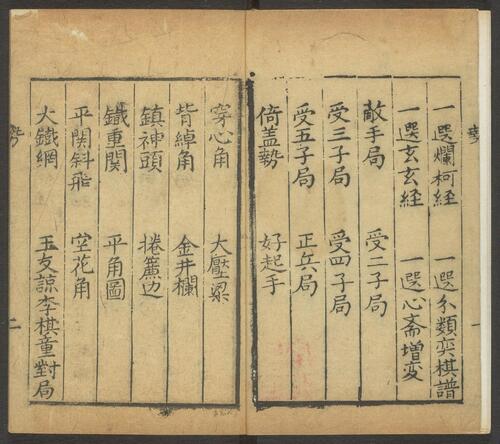 一選爛柯経 一選分類奕棋譜
一選玄玄経 一選心斎増変
敵手局 受二子局
受三子局 受四子局
受五子局 正兵局
倚盖勢 好起手
穿心角 大壓梁
背綽角 金井欄
鎮神頭 捲簾边
鐵重関 平角圖
平関斜飛 空花角
大鐵網 王友諒李棋童對局
二